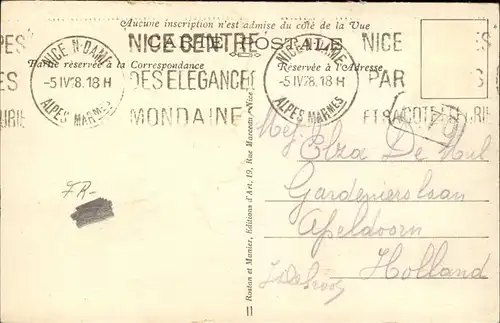 Aucune inscription n'est admise du côté de la Vue
CARTE POSTALE
Partie réservée à la Correspondance
Réservée à l'Adresse
NICE N-DAME
-5 IV 28. 18 H
ALPES MARMES
NICE CENTRE
DES ELEGANCES
MONDAINE
NICE N-DAME
-5 IV 28. 18 H
ALPES MARMES
NICE
PAR
ET SA COTE
Mej. Elza De
Gardenierslaan
Apeldoorn
Holland
FR-
Rostan et Munier, Editions d'Art, 19, Rue Marceau, Nice
11